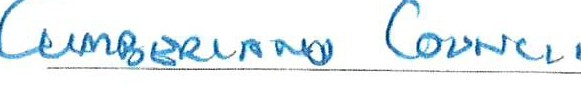 CUMBERLAND COUNCIL